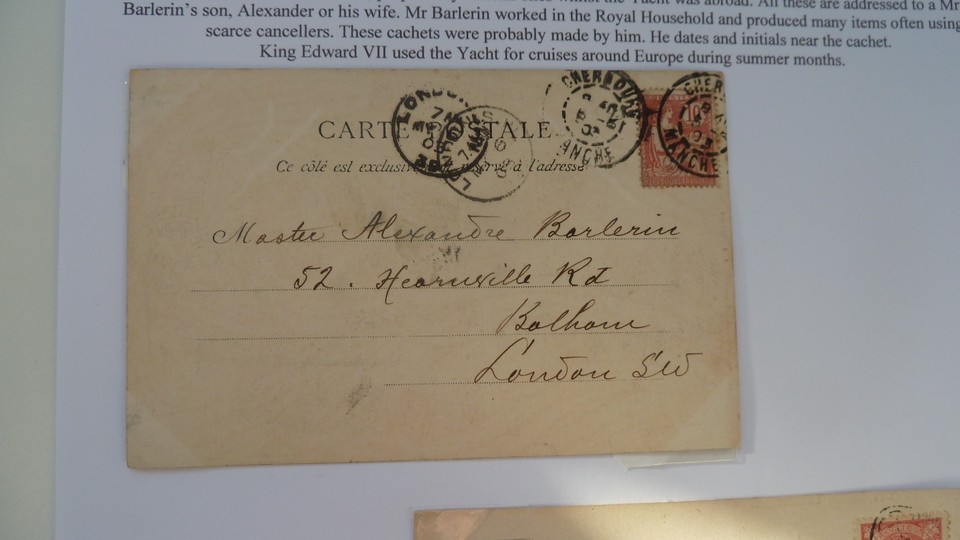 whilst the Yacht was abroad. All these are addressed to a Mr
Barlerin's son, Alexander or his wife. Mr Barlerin worked in the Royal Household and produced many items often using
scarce cancellers. These cachets were probably made by him. He dates and initials near the cachet.
King Edward VII used the Yacht for cruises around Europe during summer months.
CARTE POSTALE
Ce côté est exclusivement réservé à l'adresse
LONDON
CHERBOURG
MANCHE
03
CHER
MANCHE
03
10
Master Alexandre Barlerin
52. Hearnville Rd
Balham
London SW